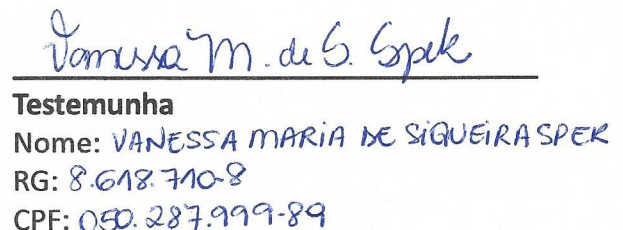 Vanessa M. de S. Spek
Testemunha
Nome: VANESSA MARIA DE SIQUEIRA SPEK
RG: 8.618.710-8
CPF: 050.287.999-89